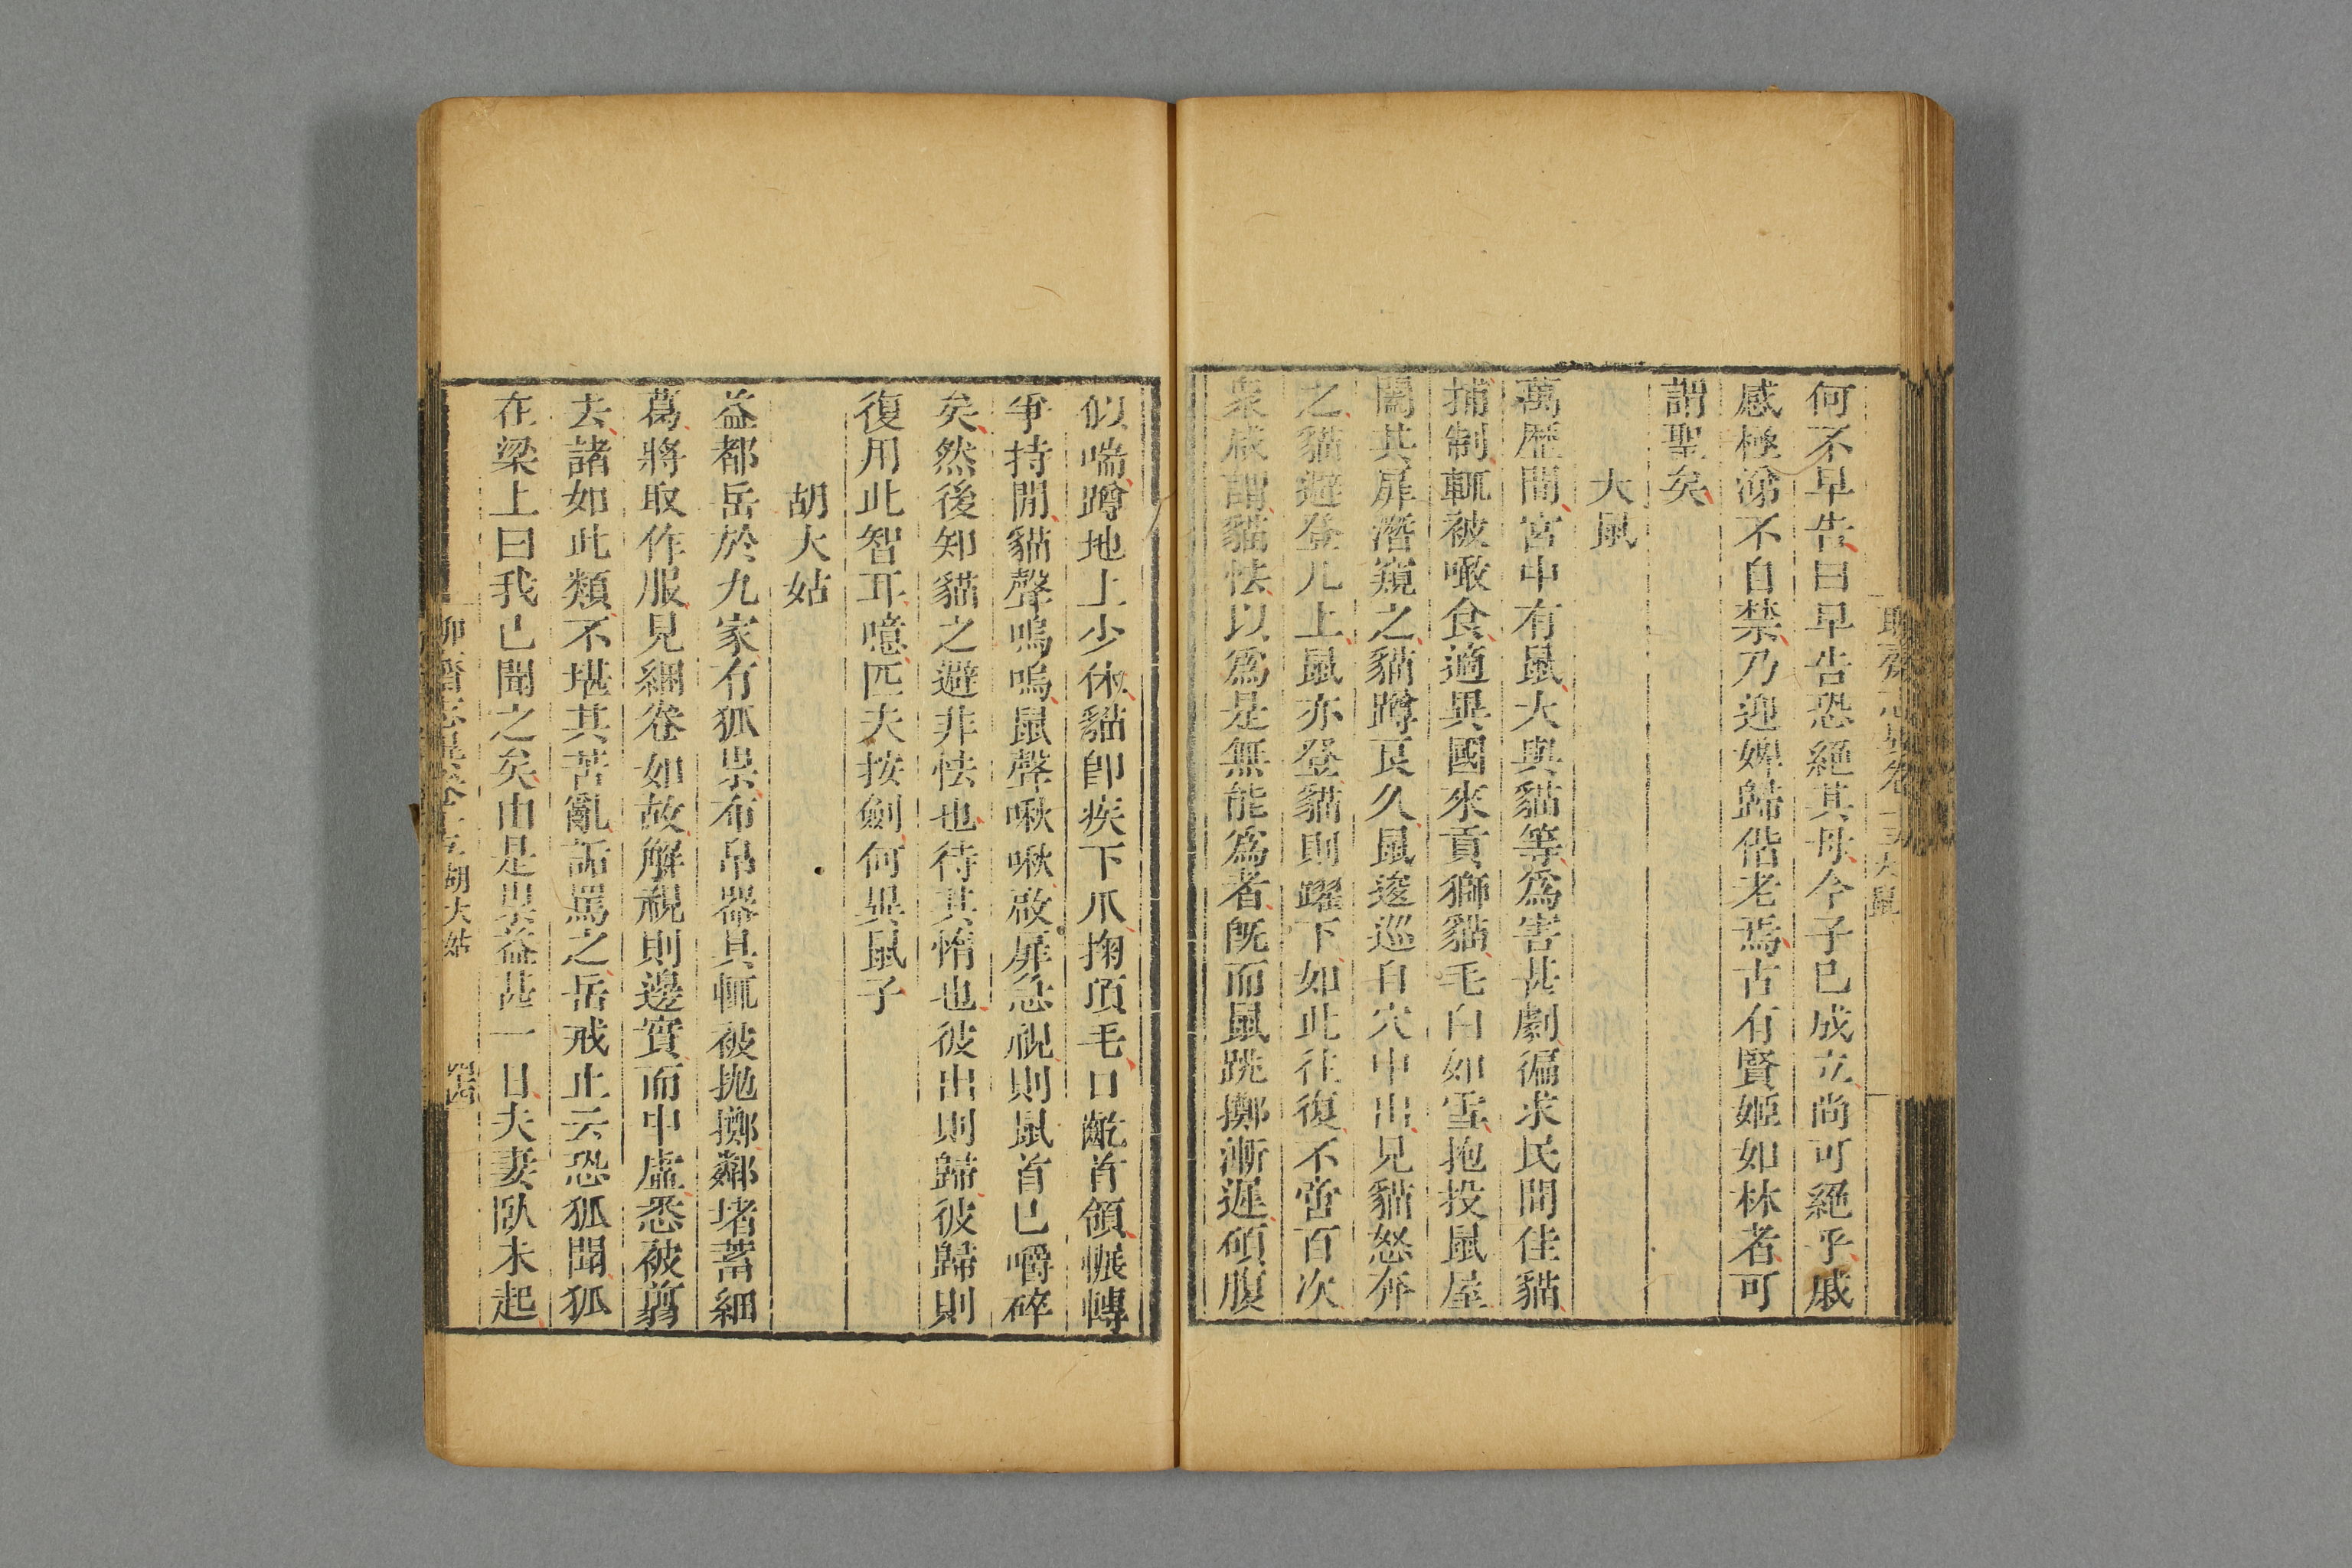 何不早告曰早告恐絕其母今子已成立尚可絕乎戚
感極涕不自禁乃迎婢歸偕老焉古有賢姬如林者可
謂聖矣
大鼠
萬歷間宮中有鼠大與貓等為害甚劇徧求民間佳貓
捕制輒被噉食適異國來貢獅貓毛白如雪抱投鼠屋
闔其扉潛窺之貓蹲良久鼠逡巡自穴中出見貓怒奔
之貓避登几上鼠亦登貓則躍下如此往復不啻百次
衆咸謂貓怯以爲是無能爲者旣而鼠跳擲漸遲碩腹
似喘蹲地上少休貓卽疾下爪掬頂毛口齕首領輾轉
爭持間貓聲嗚嗚鼠聲啾啾啟扉急視則鼠首已嚼碎
矣然後知貓之避非怯也待其惰也彼出則歸彼歸則
復用此智耳噫匹夫按劍何異鼠子
胡大姑
益都岳於九家有狐祟布帛器具輒被拋擲鄰堵蓄細
葛將取作服見綑卷如故解視則邊實而中虛悉被翦
去諸如此類不堪其苦亂詬罵之岳戒止云恐狐聞狐
在梁上曰我已聞之矣由是祟益甚一日夫妻臥未起
胡大姑